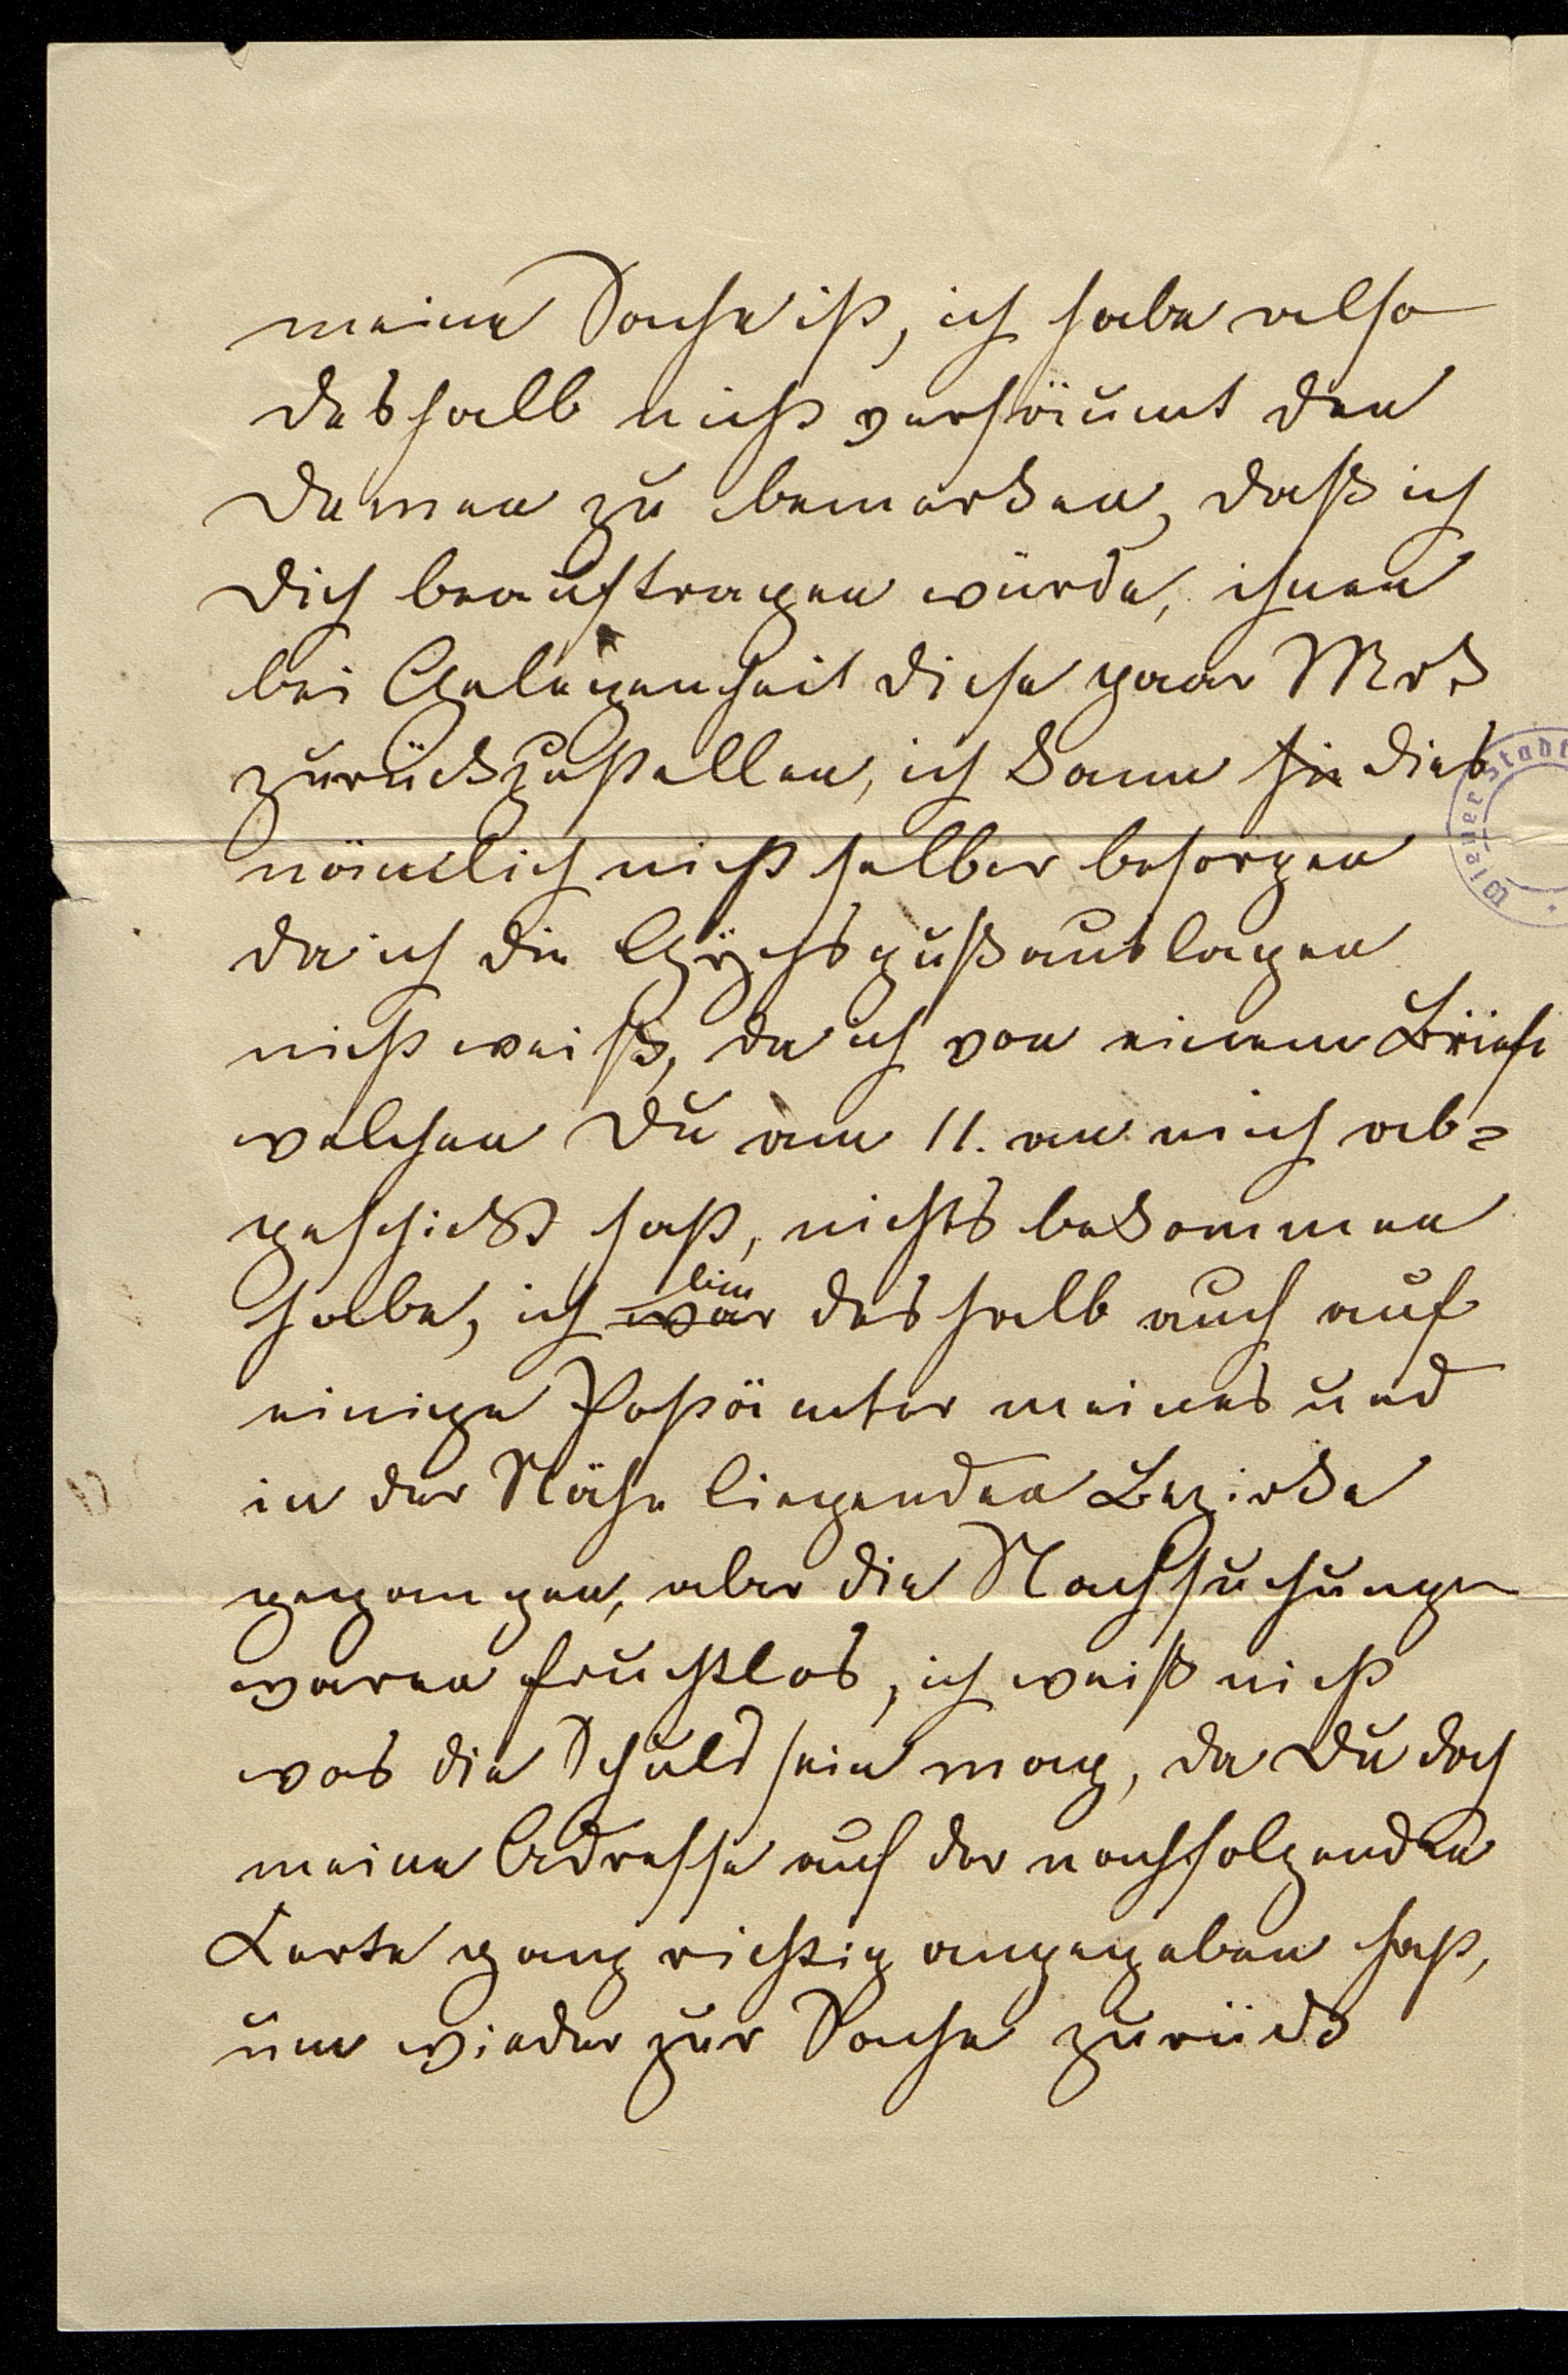 meine Sache ist, ich habe also
deshalb nicht versäumt den
Damen zu bemerken, daß ich
Dich beauftragen würde, ihnen
bei Gelegenheit diese paar Mrk
zurückzustellen, ich kann sie dies
nämlich nicht selber besorgen
da ich die Gypsgußauslagen
nicht weiß, da ich von einem Briefe
welchen Du am 11. an mich ab=
geschickt hast, nichts bekommen
habe, ich war bin deshalb auch auf
einige Postämter meines und
in der Nähe liegenden Bezirke
gegangen, aber die Nachsuchungen
waren fruchtlos, ich weiß nicht
was die Schuld sein mag, da Du doch
meine Adresse auf der nachfolgenden
Karte ganz richtig angegeben hast,
um wieder zur Sache zurück
Wiener Stadt